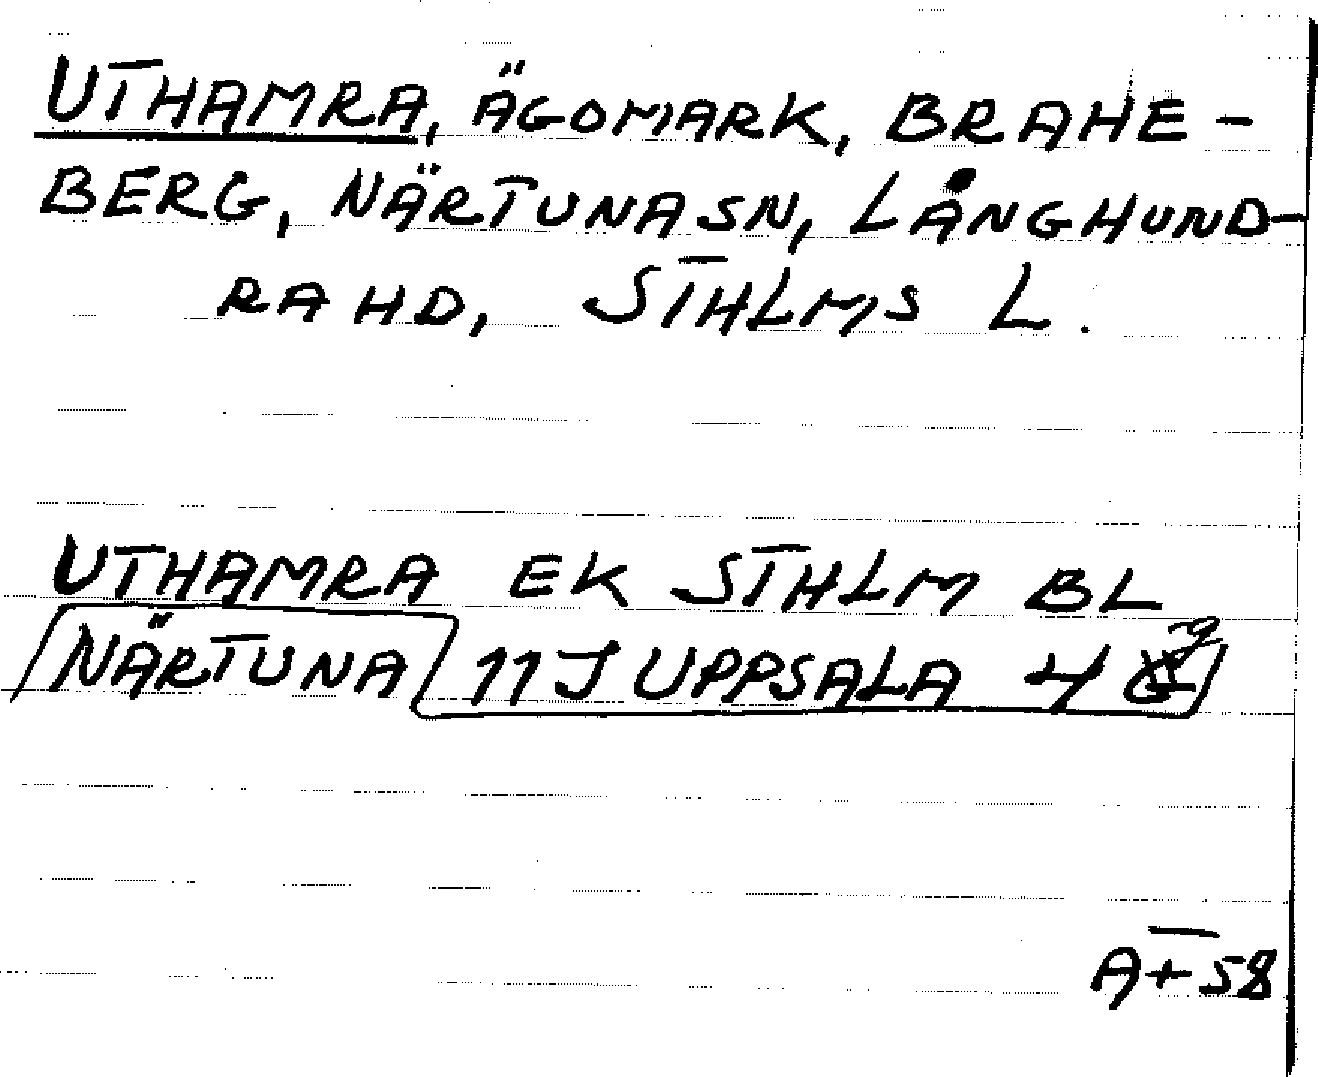 UTHAMRA, ÄGOMARK, BRAHE-
BERG, NÄRTUNASN, LÅNGHUND-
RAHD, STHLMS L.
UTHAMRA EK STHLM BL
NÄRTUNA 11J UPPSALA 4
A+58